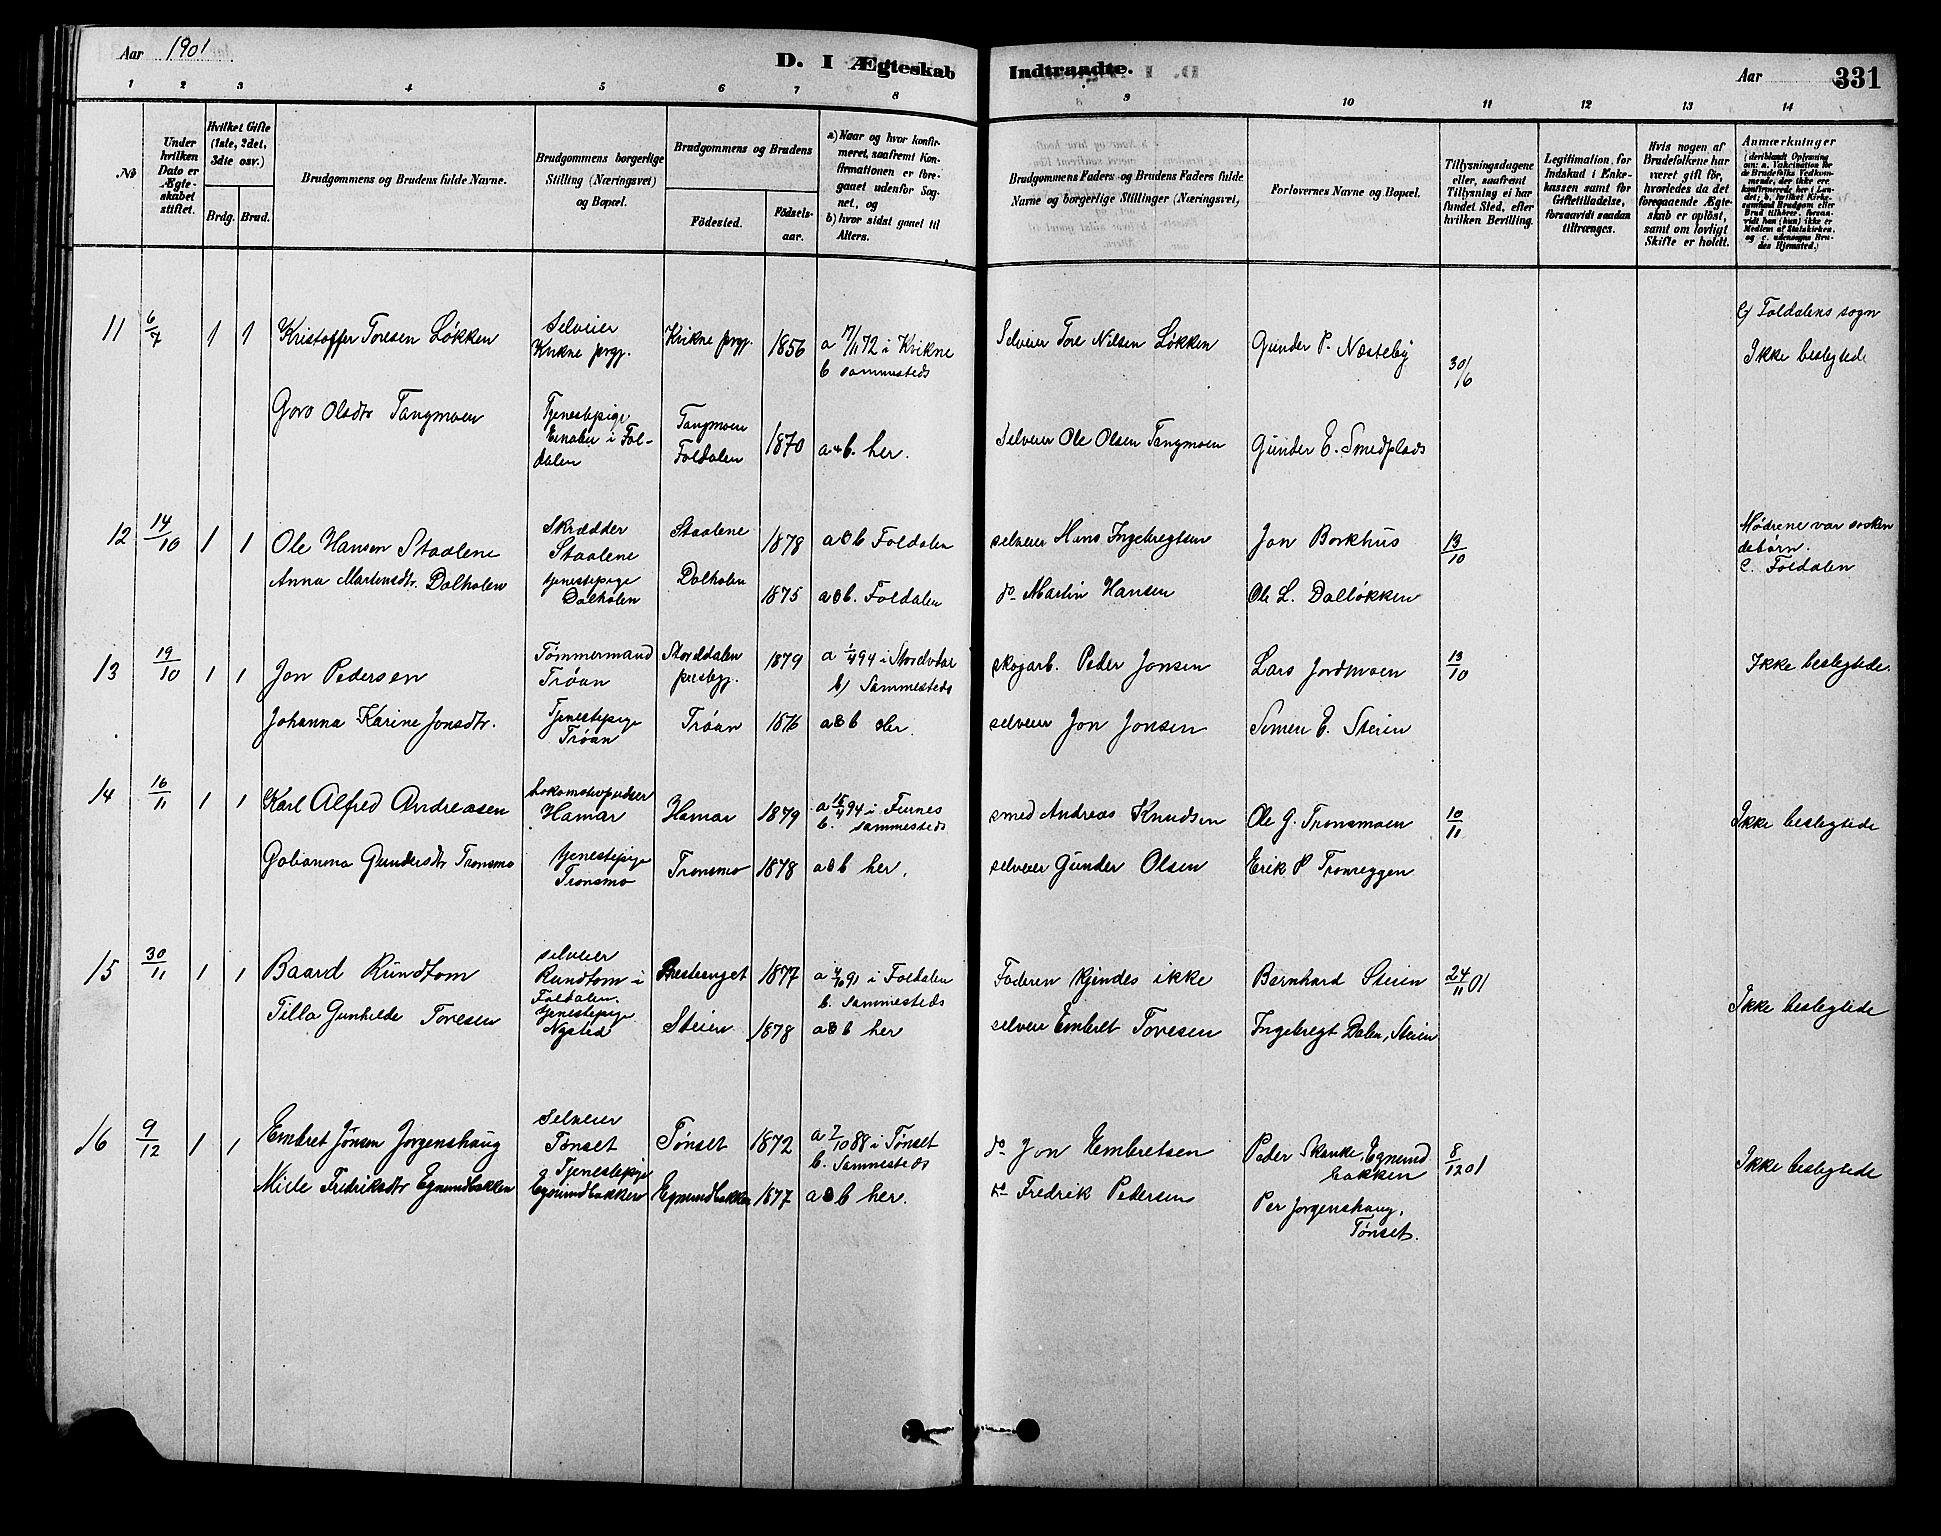 Aar 1901
D. I Ægteskab Indtraadte.
Aar 331
1 2 3 4 5 6 7 8 9 10 11 12 13 14
No
Under hvilken Dato er Ægteskabet stiftet.
Hvilket Gifte (1ste, 2det, 3die osv.)
Brdg. Brud.
Brudgommens og Brudens fulde Navne.
Brudgommens borgerlige Stilling (Næringsvei) og Bopæl.
Brudgommens og Brudens
Födested.
Födselsaar.
a) Naar og hvor konfirmeret, saafremt Konfirmationen er foregaaet udenfor Sognet, og
b) hvor sidst ganet til Alters.
Brudgommens Faders og Brudens Faders fulde Navne og borgerlige Stillinger (Næringsvei,
Forlovernes Navne og Bopæl.
Tillysningsdagene eller, saafremt Tillysning ei har fundet Sted, efter hvilken Bevilling.
Legitimation, for Indskud i Enkekassen samt for Giftetilladelse, forsaavidt saadan tiltrænges.
Hvis nogen af Brudefolkene har været gift för, hvorledes da det foregaaende Ægteskab er oplöst, samt om lovligt Skifte er holdt.
Anmærkninger
11 6/7 1 1 Kristoffer Toresen Løkken Selveier Kvikne prgj. Kvikne prgj. 1856 a 17/11 72 i Kvikne b sammesteds Selveier Tore Nilsen Løkken Gunder P. Næsteby 30/6 c) Foldalens sogn Ikke beslegtede
Goro Olsdtr Tangmoen Tjenestepige i Foldalen Tangmoen Foldalen 1870 a & b. her. Selveier Ole Olsen Tangmoen Gunder E. Smedplads
12 14/10 1 1 Ole Hansen Staalene Skrædder Staalene Staalene 1878 a & b Foldalen selveier Hans Ingebregtsen Jon Borkhus 13/10 Mødrene var søskendebørn. c. Foldalen
Anna Martinsdtr. Dalholen tjenestepige Dalholen Dalholen 1875 a & b. Foldalen do Martin Hansen Ole L. Dalløkken
13 19/10 1 1 Jon Pedersen Tømmermand Trøan Storeldalen prestgj. 1879 a 1/4 94 i Storelvdal b) Sammesteds skogarb. Peder Jonsen Lars Jordmoen 13/10 Ikke beslegtede.
Johanna Karine Jonsdtr. Tjenestepige Trøan Trøan 1876 a & b her. selveier Jon Jonsen Simen E. Steien
14 16/11 1 1 Karl Alfred Andreasen Lokomotivpudser Hamar Hamar 1879 a 15/4 94 i Furnes b. sammesteds smed Andreas Knudsen Ole G. Tronsmoen 10/11 Ikke beslegtede
Gundersdtr Tronsmo tjenestepige Tronsmo Tronsmo 1878 a & b her. selveier Gunder Olsen Erik P Troneggen
15 30/11 1 1 Baard Rundtom selveier Rundtom i Foldalen. 1877 a 91 i Foldalen b. Sammesteds Faderen kjendes ikke Bernhard Steien 24/11 01 Ikke beslegtede
Tilla Gunhilde Toresen tjenestepige Nysted Steien 1878 a & b her selveier Embret Toresen Ingebregt Dalen, Steien
16 9/12 1 1 Embret Jonsen Jorgenshaug Selveier Tønset Tønset 1872 a 7/10 88 i Tønset b. Sammesteds do Jon Embretsen Peder Skanke, Egnundbakken 8/12 01 Ikke beslegtede
Fredriksdtr Egnundbakken Tjenestepige Egnundbakken Egnundbakken 1877 a & b her. do Fredrik Pedersen Per Jorgenshaug, Tønset.